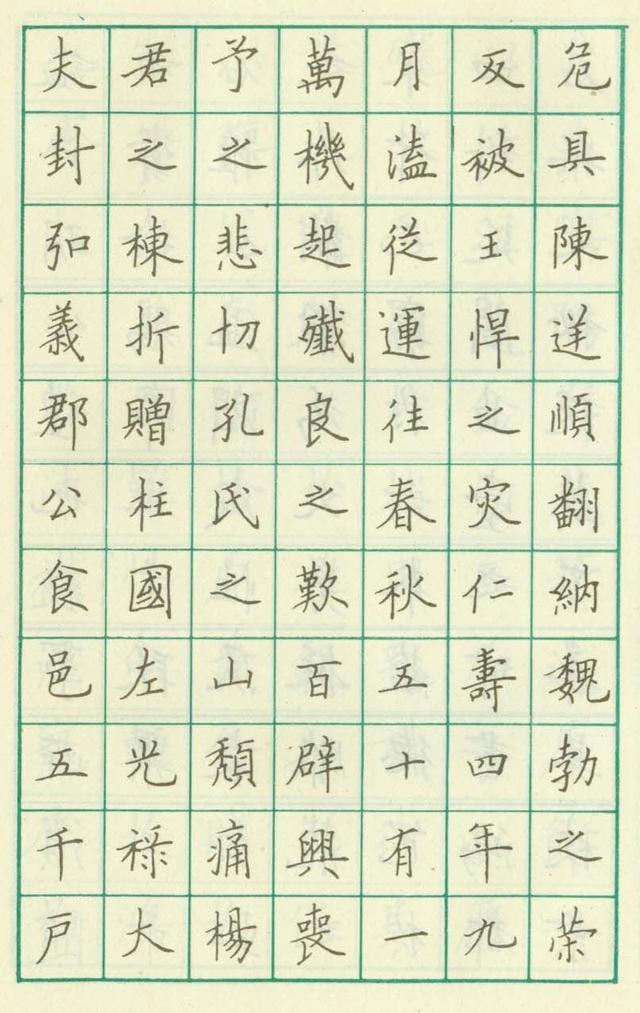 危具陳逆順翻納魏勃之榮
反被王悍之灾仁壽四年九
月溘從運往春秋五十有一
萬機起殲良之歎百辟興喪
予之悲切孔氏之山頹痛楊
君之棟折贈柱國左光禄大
夫封弘義郡公食邑五千戸